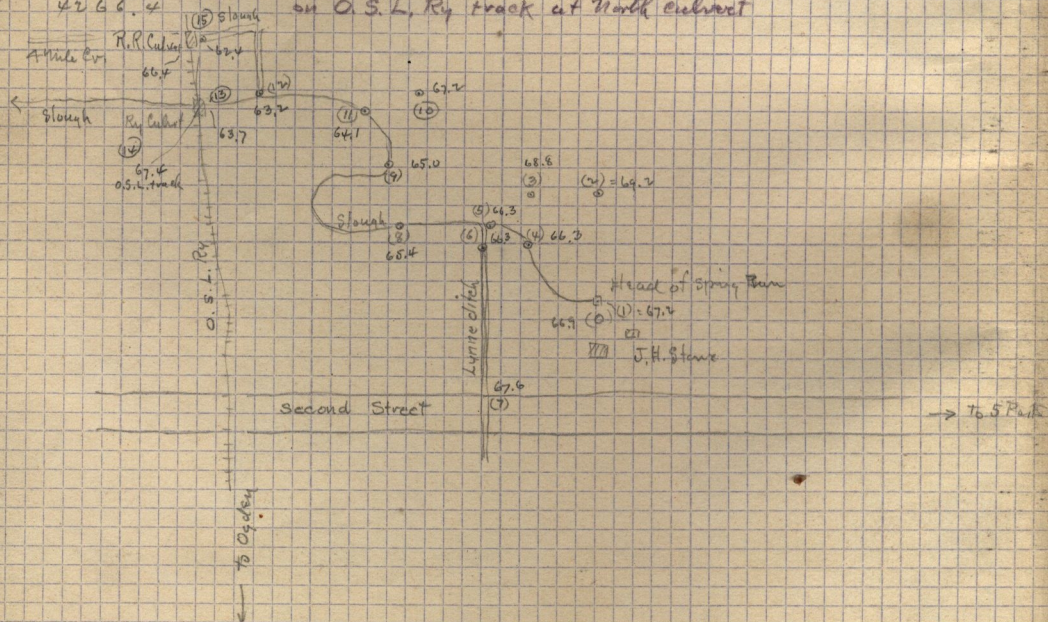 4266.4
on O.S.L. Ry track at North culvert
(15) Slough
R.R. Culvert
62.4
4 Mile Cr.
66.4
(13)
(12)
63.2
67.2
(10)
(11)
64.1
Slough
Ry Culvert
63.7
(14)
67.4
O.S.L. track
65.0
(9)
68.8
(3)
(2) = 69.2
Slough
(5) 66.3
(8)
65.4
(6) 66.3
(4) 66.3
O.S.L. Ry
Lynne ditch
Head of Spring Run
66.9
(1) = 67.2
J.H. Stowe
67.6
(7)
Second Street
→ To 5 Points
← to Ogden